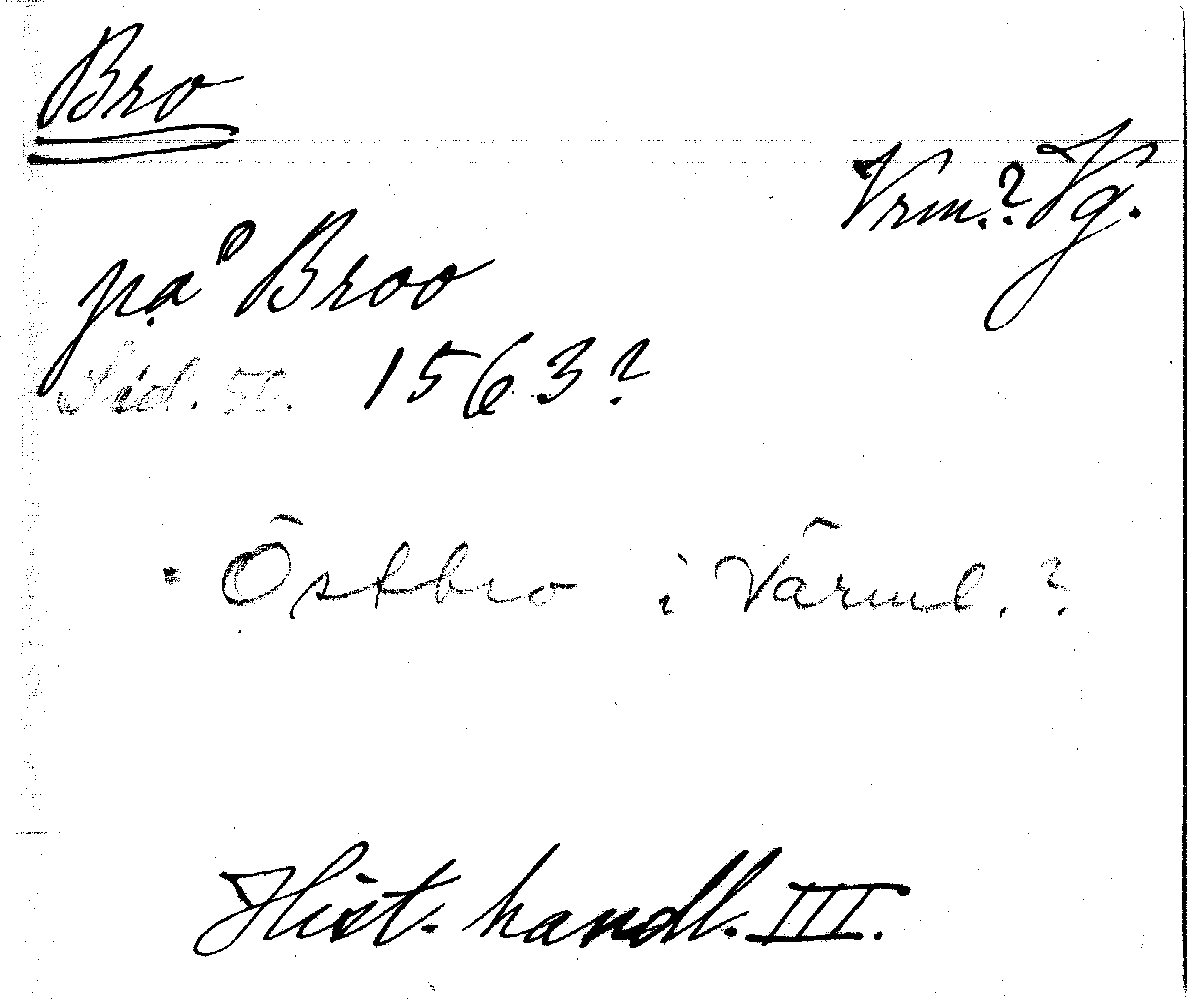 Bro
Vrm.? Vg.
på Broo
Sid. 50. 1563?
Östbro i Värml. ?
Hist. handl. III.